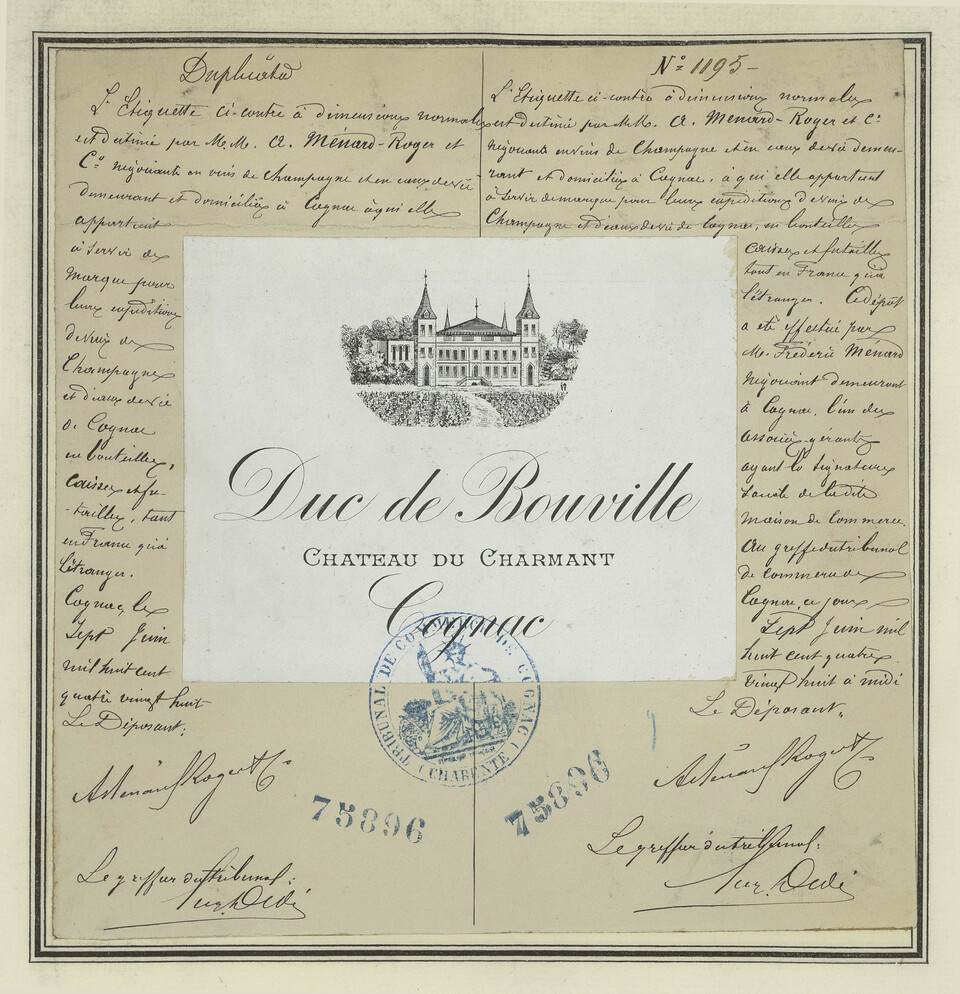 Duplicata
L'Etiquette ci-contre à dimensions normales
est destinée par M.M. A. Ménard-Roger et
Cie négociants en vins de Champagne et en eaux de vie
demeurant et domiciliés à Cognac à qui elle
appartient
à servir de
marque pour
leurs expéditions
de vins de
Champagne
et d'eaux de vie
de Cognac
en bouteilles,
caisses et fu-
-tailles, tant
en France qu'à
l'étranger.
Cognac, le
Sept Juin
mil huit cent
quatre vingt huit
Le Déposant:
AMénardRoger &Co
Le greffier du tribunal:
Dédé
No 1195-
L'Etiquette ci-contre à dimensions normales
est destinée par M.M. A. Ménard-Roger et Cie
négociants en vins de Champagne et en eaux de vie demeu-
rant et domiciliés à Cognac, à qui elle appartient
à servir de marque pour leurs expéditions de vins de
Champagne et d'eaux de vie de Cognac, en bouteilles
caisses et futailles
tant en France qu'à
l'étranger. Ce dépôt
a été effectué par
M. Frédéric Ménard
négociant demeurant
à Cognac, l'un des
associés-gérants
ayant la signature
sociale de la dite
maison de commerce.
Au greffe du tribunal
de commerce de
Cognac, ce jour
Sept Juin mil
huit cent quatre
vingt huit à midi
Le Déposant,
AMénardRoger &Co
Le greffier du tribunal:
Dédé
Duc de Bouville
CHATEAU DU CHARMANT
Cognac
TRIBUNAL DE COMMERCE DE COGNAC
(CHARENTE)
75896
75896